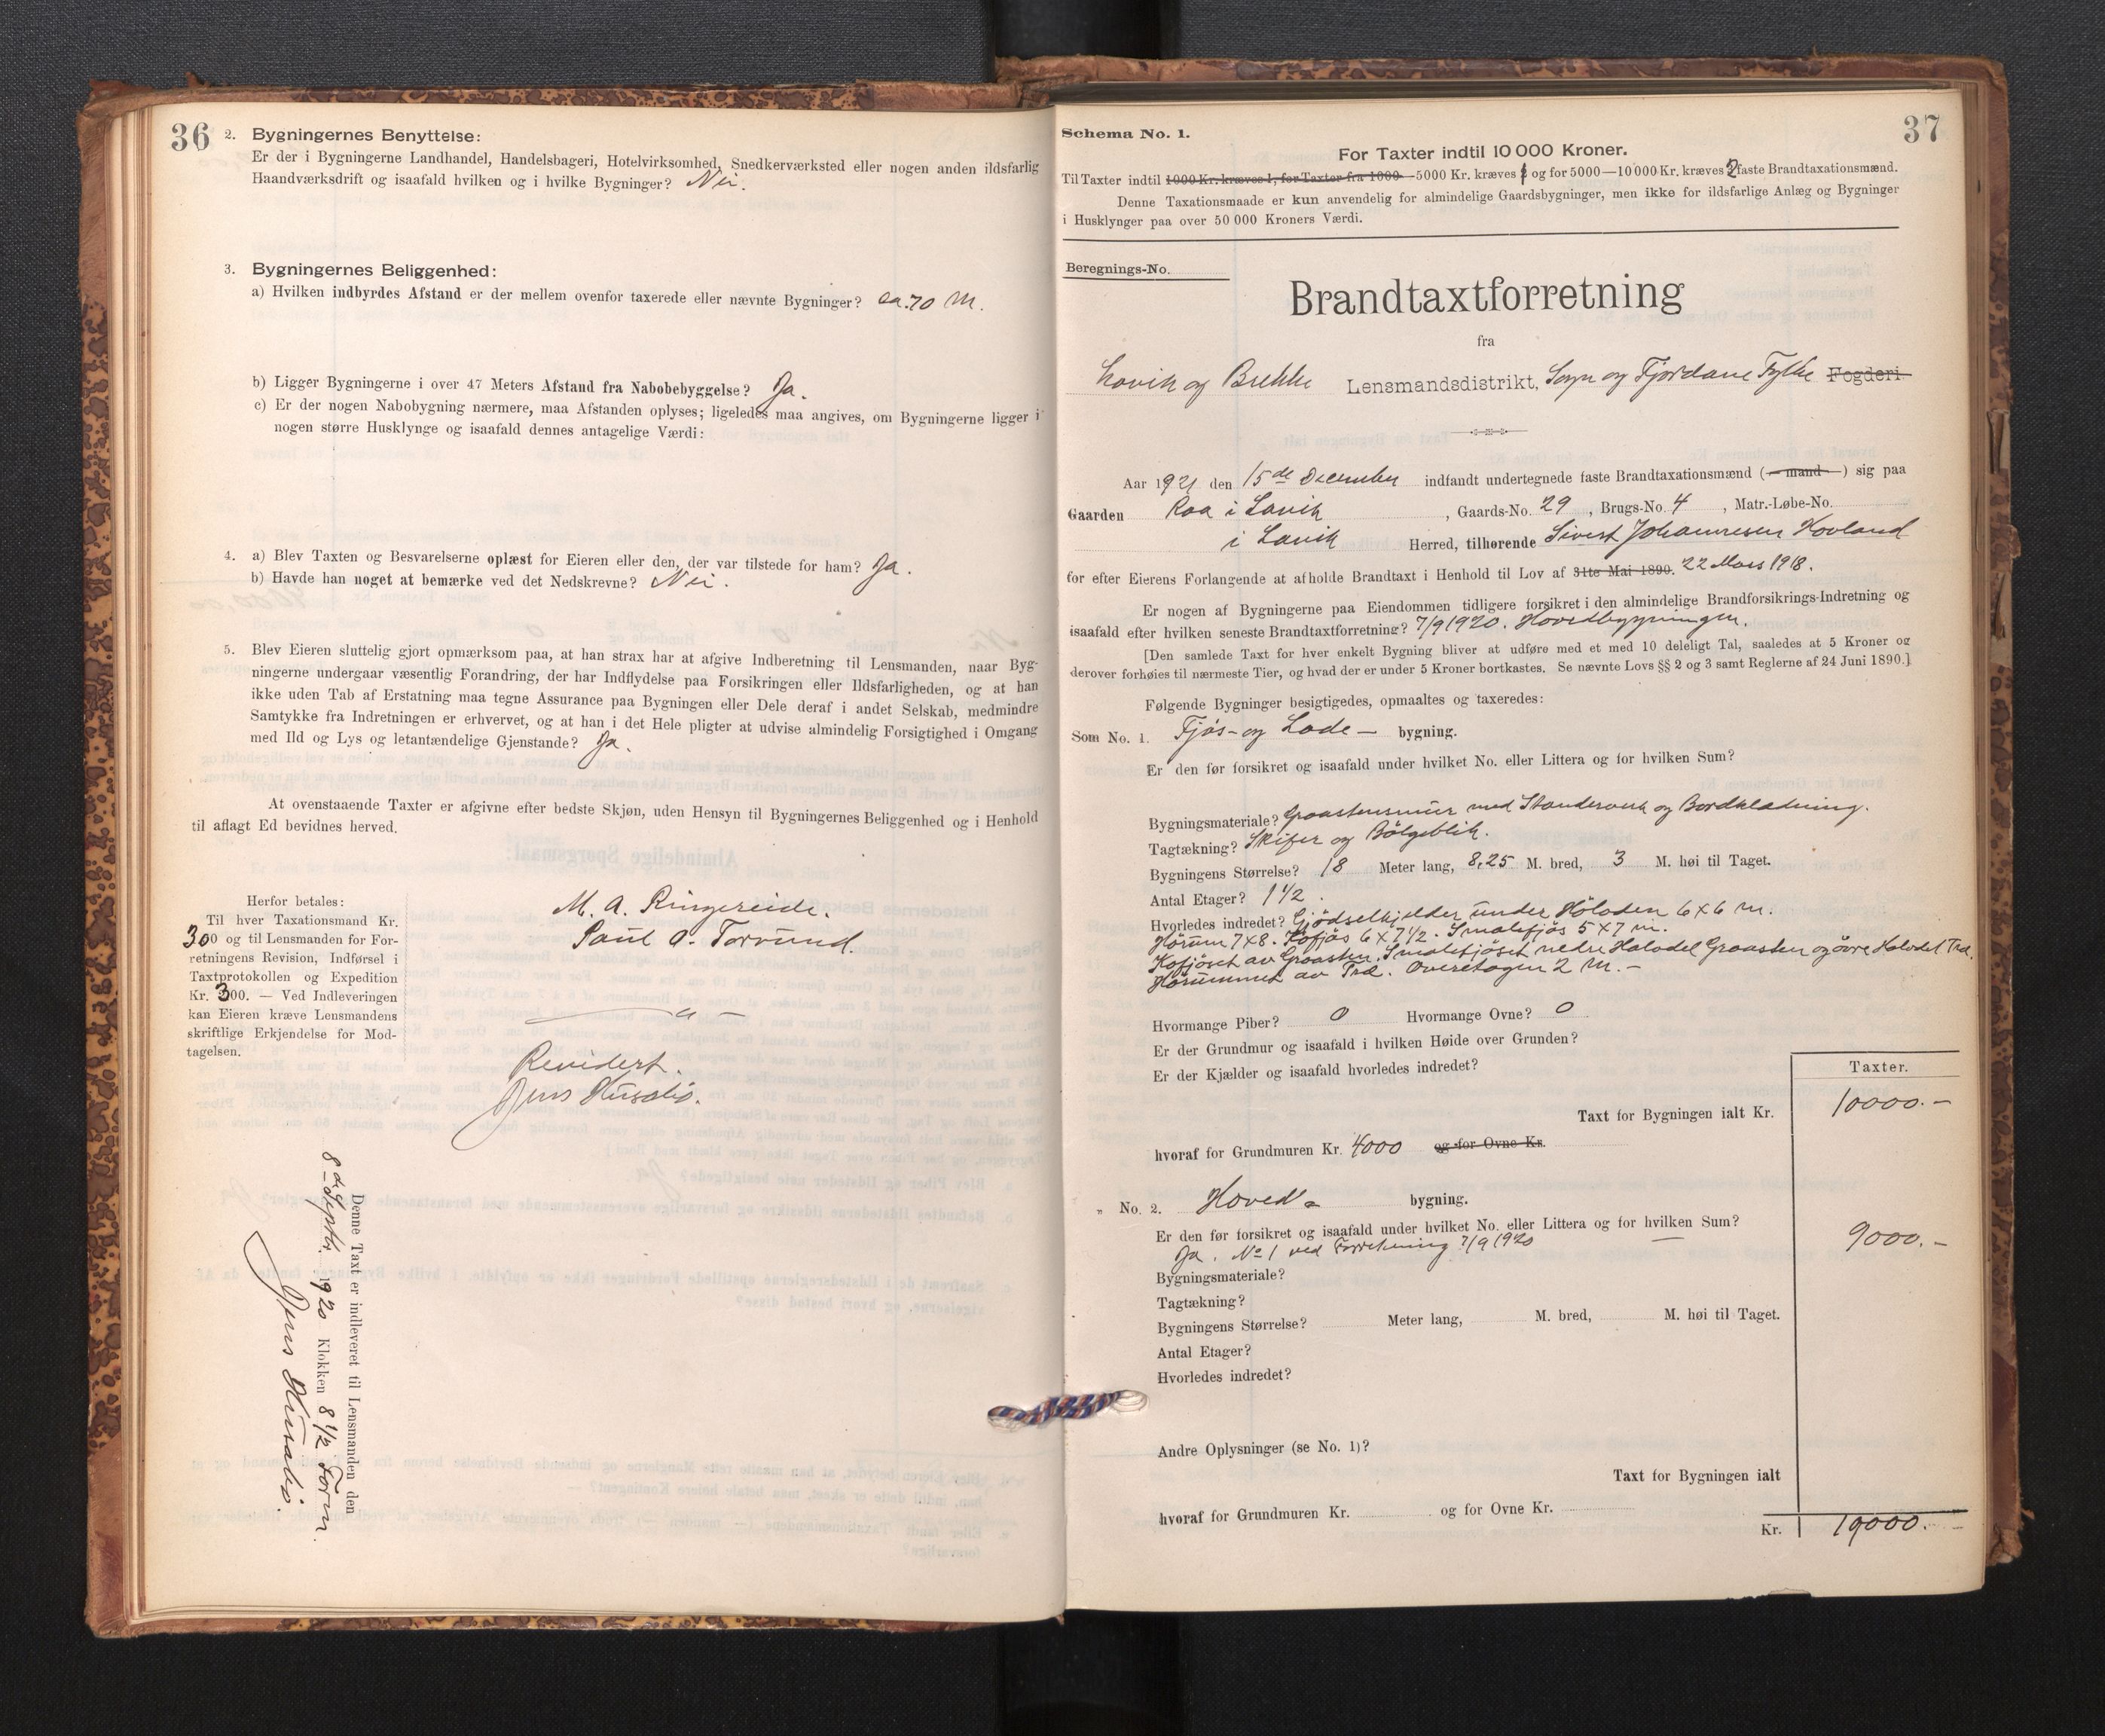 36
2. Bygningernes Benyttelse:
Er der i Bygningerne Landhandel, Handelsbageri, Hotelvirksomhed, Snedkerværksted eller nogen anden ildsfarlig
Haandværksdrift og isaafald hvilken og i hvilke Bygninger? Nei.
3. Bygningernes Beliggenhed:
a) Hvilken indbyrdes Afstand er der mellem ovenfor taxerede eller nævnte Bygninger? ca. 70 M.
b) Ligger Bygningerne i over 47 Meters Afstand fra Nabobebyggelse? Ja.
c) Er der nogen Nabobygning nærmere, maa Afstanden oplyses; ligeledes maa angives, om Bygningerne ligger i
nogen større Husklynge og isaafald dennes antagelige Værdi:
4. a) Blev Taxten og Besvarelserne oplæst for Eieren eller den, der var tilstede for ham? Ja.
b) Havde han noget at bemærke ved det Nedskrevne? Nei.
5. Blev Eieren sluttelig gjort opmærksom paa, at han strax har at afgive Indberetning til Lensmanden, naar Byg-
ningerne undergaar væsentlig Forandring, der har Indflydelse paa Forsikringen eller Ildsfarligheden, og at han
ikke uden Tab af Erstatning maa tegne Assurance paa Bygningen eller Dele deraf i andet Selskab, medmindre
Samtykke fra Indretningen er erhvervet, og at han i det Hele pligter at udvise almindelig Forsigtighed i Omgang
med Ild og Lys og letantændelige Gjenstande? Ja.
At ovenstaaende Taxter er afgivne efter bedste Skjøn, uden Hensyn til Bygningernes Beliggenhed og i Henhold
til aflagt Ed bevidnes herved.
Herfor betales:
Til hver Taxationsmand Kr.
300 og til Lensmanden for For-
retningens Revision, Indførsel i
Taxtprotokollen og Expedition
Kr. 300. — Ved Indleveringen
kan Eieren kræve Lensmandens
skriftlige Erkjendelse for Mod-
tagelsen.
M. A. Ringereide.
Paul A. Torvund.
Revidert.
Jens Husabø.
Denne Taxt er indleveret til Lensmanden den
8de Septbr. 1920 Klokken 8 1/2 Form.
Jens Husabø.
37
Schema No. 1.
For Taxter indtil 10 000 Kroner.
Til Taxter indtil 1000 Kr. kræves 1, for Taxter fra 1000—5000 Kr. kræves 1 og for 5000—10000 Kr. kræves 2 faste Brandtaxationsmænd.
Denne Taxationsmaade er kun anvendelig for almindelige Gaardsbygninger, men ikke for ildsfarlige Anlæg og Bygninger
i Husklynger paa over 50 000 Kroners Værdi.
Beregnings-No.
Brandtaxtforretning
fra
Lavik og Brekke Lensmandsdistrikt, Sogn og Fjordane Fylke Fogderi.
Aar 1921 den 15de December indfandt undertegnede faste Brandtaxationsmænd (— mand —) sig paa
Gaarden Raa i Lavik, Gaards-No. 29, Brugs-No. 4, Matr.-Løbe-No.
i Lavik Herred, tilhørende Sivert Johannesen Hovland
for efter Eierens Forlangende at afholde Brandtaxt i Henhold til Lov af 31te Mai 1890. 22 Mars 1918.
Er nogen af Bygningerne paa Eiendommen tidligere forsikret i den almindelige Brandforsikrings-Indretning og
isaafald efter hvilken seneste Brandtaxtforretning? 7/9 1920. Hovedbygningen.
[Den samlede Taxt for hver enkelt Bygning bliver at udføre med et med 10 deleligt Tal, saaledes at 5 Kroner og
derover forhøies til nærmeste Tier, og hvad der er under 5 Kroner bortkastes. Se nævnte Lovs §§ 2 og 3 samt Reglerne af 24 Juni 1890.]
Følgende Bygninger besigtigedes, opmaaltes og taxeredes:
Som No. 1. Fjøs- og Lade — bygning.
Er den før forsikret og isaafald under hvilket No. eller Littera og for hvilken Sum?
Bygningsmateriale? Graastensmur med Standerverk og Bordklædning.
Tagtækning? Skifer og Bølgeblik.
Bygningens Størrelse? 18 Meter lang, 8,25 M. bred, 3 M. høi til Taget.
Antal Etager? 1 1/2.
Hvorledes indredet? Gjødselkjelder under Høladen 6 x 6 m.
Hørum 7 x 8. Kofjøs 6 x 7 1/2. Smalefjøs 5 x 7 m.
Kofjøset av Graasten. Smalefjøset nedre Halvdel Graasten og øvre Halvdel Træ.
Hørummet av Træ. Overetagen 2 m. —
Hvormange Piber? 0 Hvormange Ovne? 0
Er der Grundmur og isaafald i hvilken Høide over Grunden?
Er der Kjælder og isaafald hvorledes indredet?
Taxter.
Taxt for Bygningen ialt Kr. 10000.—
hvoraf for Grundmuren Kr. 4000 og for Ovne Kr.
„ No. 2. Hoved- bygning.
Er den før forsikret og isaafald under hvilket No. eller Littera og for hvilken Sum?
Ja. No 1 ved Forretning 7/9 1920 9000.—
Bygningsmateriale?
Tagtækning?
Bygningens Størrelse? Meter lang, M. bred, M. høi til Taget.
Antal Etager?
Hvorledes indredet?
Andre Oplysninger (se No. 1)?
Taxt for Bygningen ialt
hvoraf for Grundmuren Kr. og for Ovne Kr.
Kr. 19000.—